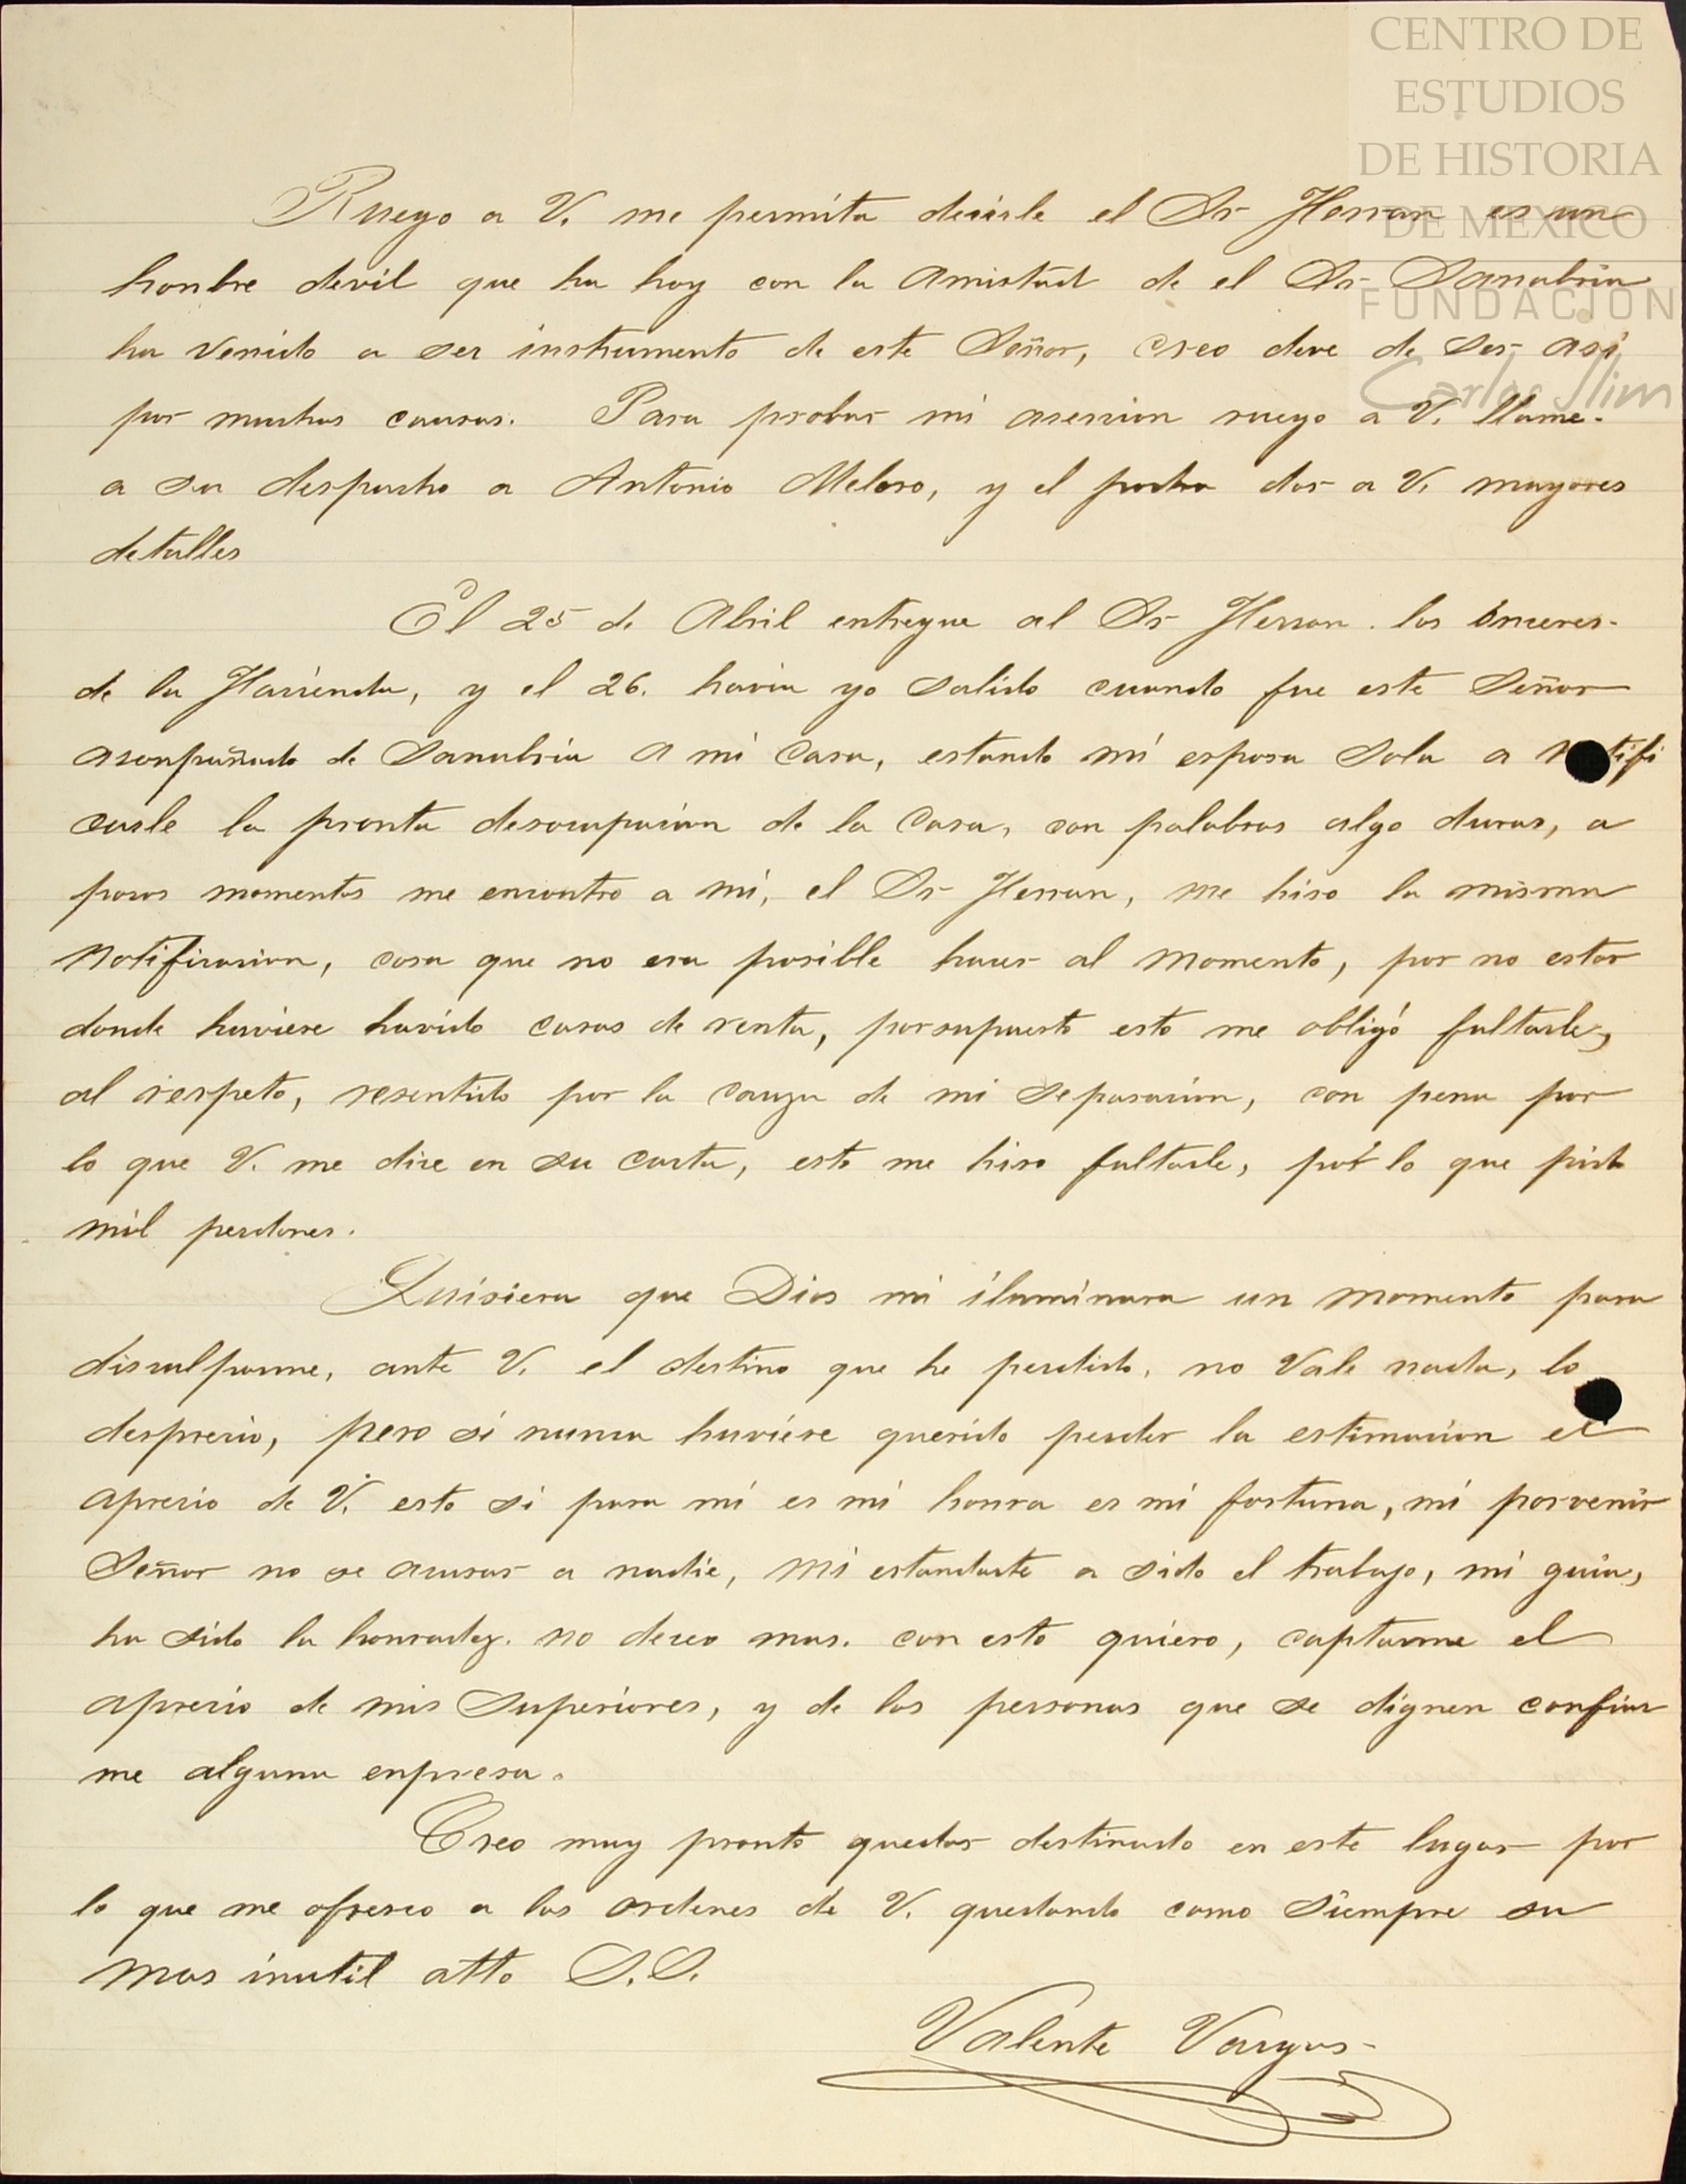 CENTRO DE
ESTUDIOS
DE HISTORIA
DE MEXICO
FUNDACION
Carlos Slim
Ruego a V. me permita decirle el Sr Herran es un
honbre devil que ha hoy con la amistad de el Sr Sanabria
ha venido a ser instrumento de este Señor, creo deve de ser asi
por muchas causas. Para probar mi asercion ruego a V. llame-
a su despacho a Antonio Meloso, y el podra dar a V. mayores
detalles
El 25 de Abril entregue al Sr Herran. los enceres-
de la Hacienda, y el 26. havia yo salido cuando fue este Señor
aconpañado de Sanabria a mi casa, estando mi esposa sola a notifi
carle la pronta desocupacion de la casa, con palabras algo duras, a
pocos momentos me encontro a mi, el Sr Herran, me hiso la misma
notificacion, cosa que no era posible hacer al momento, por no estar
donde huviere havido casas de renta, porsupuesto esto me obligó faltarle,
al respeto, resentido por la cauza de mi separacion, con pena por
lo que V. me dice en su carta, esto me hiso faltarle, por lo que pido
mil perdones.
Quisiera que Dios mi iluminara un momento para
disculparme, ante V. el destino que he perdido, no vale nada, lo
desprecio, pero si nunca huviere querido perder la estimacion el
aprecio de V. esto si para mi es mi honra es mi fortuna, mi porvenir
Señor no se acusar a nadie, mi estandarte a sido el trabajo, mi guia,
ha sido la honradez. no deseo mas. con esto quiero, captarme el
aprecio de mis superiores, y de las personas que se dignen confiar
me alguna enpresa.
Creo muy pronto quedar destinado en este lugar por
lo que me ofresco a las ordenes de V. quedando como siempre su
mas inutil atto S.S.
Valente Vargas-